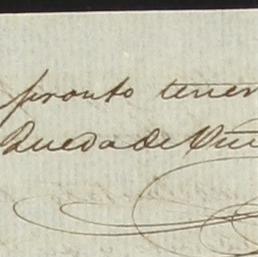 pronto tener
Queda de Vm